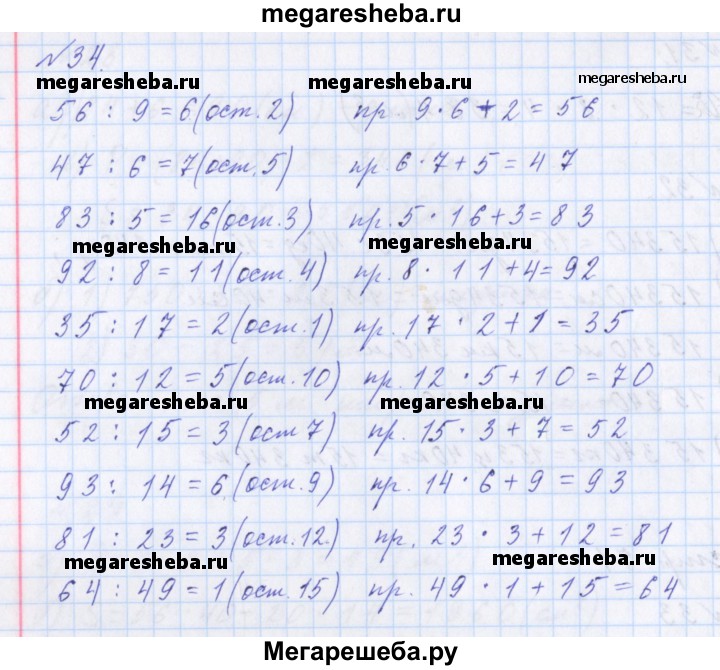 megaresheba.ru
№34.
megaresheba.ru megaresheba.ru megaresheba.ru
56 : 9 = 6(ост.2) пр. 9·6+2=56
47 : 6 = 7(ост.5) пр. 6·7+5=47
83 : 5 = 16(ост.3) пр. 5·16+3=83
megaresheba.ru megaresheba.ru
92 : 8 = 11(ост.4) пр. 8·11+4=92
35 : 17 = 2(ост.1) пр. 17·2+1=35
70 : 12 = 5(ост.10) пр. 12·5+10=70
megaresheba.ru megaresheba.ru
52 : 15 = 3(ост 7) пр. 15·3+7=52
93 : 14 = 6(ост.9) пр. 14·6+9=93
81 : 23 = 3(ост.12.) пр. 23·3+12=81
megaresheba.ru megaresheba.ru
64 : 49 = 1(ост.15) пр. 49·1+15=64
Мегарешеба.ру